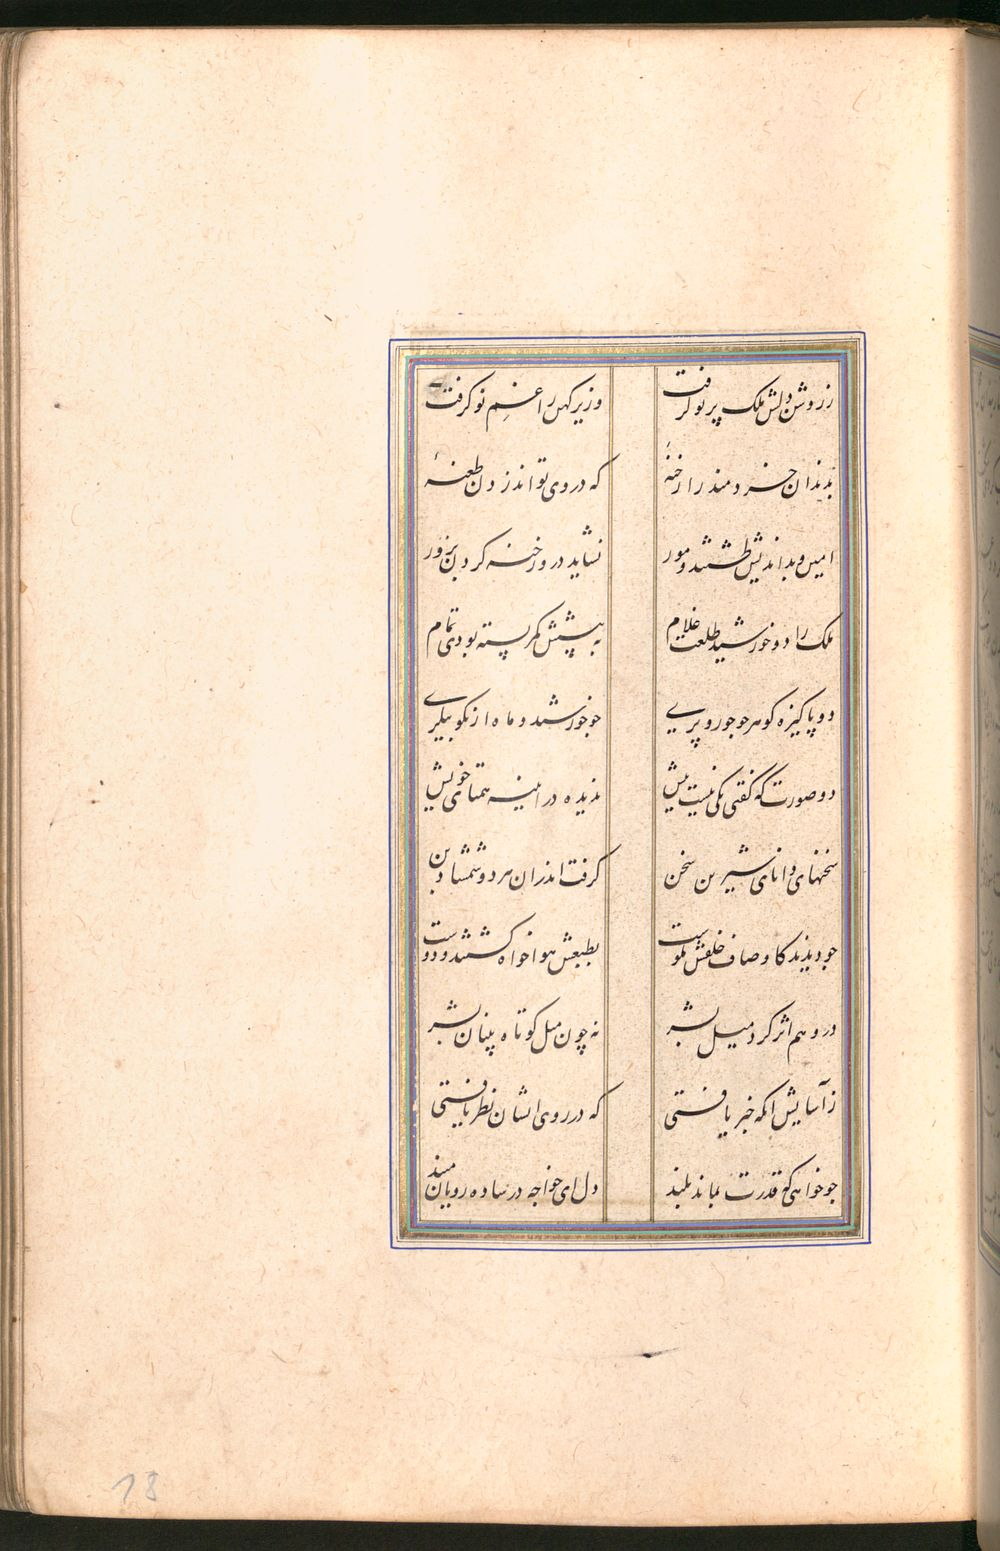 ز روشن دلش ملک پرتو گرفت وزیر کهن را غم نو گرفت
ندید آن خردمند را رخنهٔ که در وی تواند زدن طعنهٔ
امین و بداندیش طشتند و مور نشاید درو رخنه کردن بزور
ملک را دو خورشید طلعت غلام به پیشش کمر بسته بودی تمام
دو پاکیزه گوهر چو حور و پری چو خورشید و ماه از نکو پیکری
دو صورت که گفتی یکی نیست بیش ندیده در آینه همتای خویش
سخنهای دانای شیرین سخن گرفت اندران هر دو شمشاد بن
چو دیدند کاوصاف خلقش نکوست بطبعش هواخواه گشتند و دوست
درو هم اثر کرد میل بشر نه چون میل کوتاه بینان بشر
ز آسایش آنگه خبر یافتی که در روی ایشان نظر یافتی
چو خواهی که قدرت بماند بلند دل ای خواجه در ساده رویان مبند
18